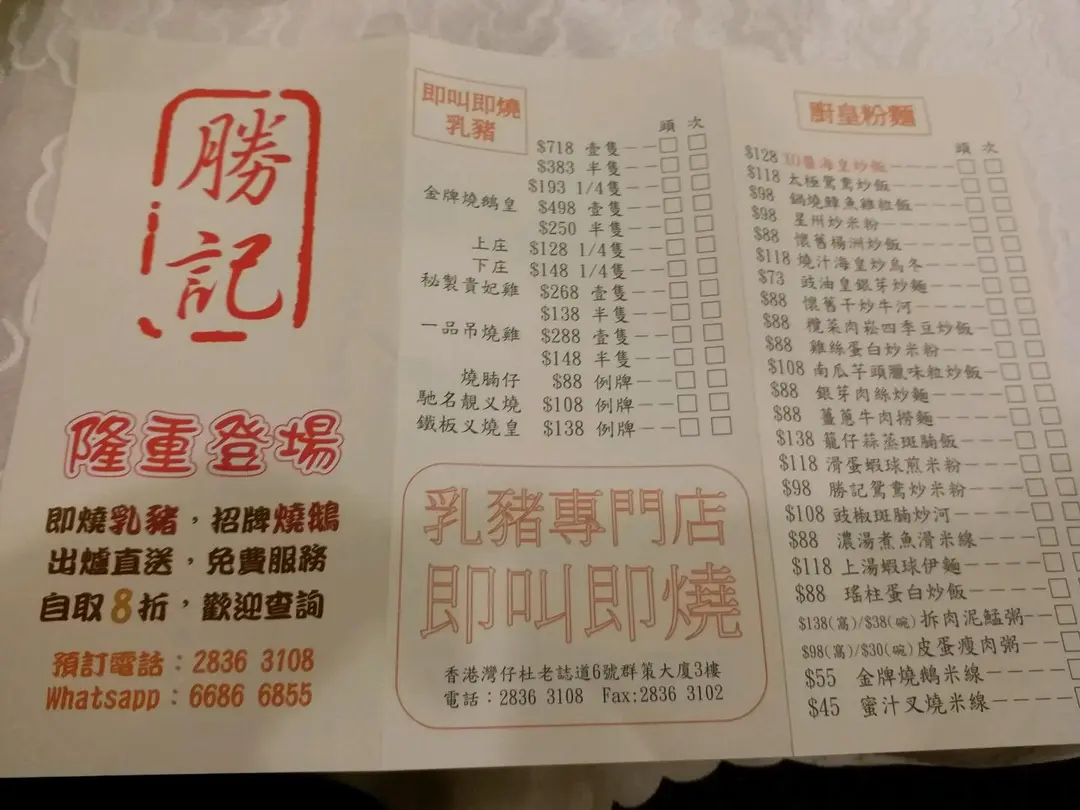 勝記
隆重登場
即燒乳豬，招牌燒鵝
出爐直送，免費服務
自取8折，歡迎查詢
預訂電話：2836 3108
Whatsapp：6686 6855
即叫即燒
乳豬
頭 次
$718 壹隻--□ □
$383 半隻--□ □
$193 1/4隻--□ □
金牌燒鵝皇 $498 壹隻--□ □
$250 半隻--□ □
上庄 $128 1/4隻--□ □
下庄 $148 1/4隻--□ □
秘製貴妃雞 $268 壹隻--□ □
$138 半隻--□ □
一品吊燒雞 $288 壹隻--□ □
$148 半隻--□ □
燒腩仔 $88 例牌--□ □
馳名靚叉燒 $108 例牌--□ □
鐵板叉燒皇 $138 例牌--□ □
乳豬專門店
即叫即燒
香港灣仔杜老誌道6號群策大廈3樓
電話：2836 3108 Fax:2836 3102
廚皇粉麵
頭 次
$128 XO醬海皇炒飯
$118 太極鴛鴦炒飯
$98 鍋燒鱆魚雞粒飯
$98 星州炒米粉
$88 懷舊楊洲炒飯
$118 燒汁海皇炒烏冬
$73 豉油皇銀芽炒麵
$88 懷舊干炒牛河
$88 欖菜肉崧四季豆炒飯
$88 雞絲蛋白炒米粉
$108 南瓜芋頭臘味粒炒飯
$88 銀芽肉絲炒麵
$88 薑蔥牛肉撈麵
$138 籠仔蒜蒸斑腩飯
$118 滑蛋蝦球煎米粉
$98 勝記鴛鴦炒米粉
$108 豉椒斑腩炒河
$88 濃湯煮魚滑米線
$118 上湯蝦球伊麵
$88 瑤柱蛋白炒飯
$138(窩)/$38(碗) 拆肉泥鯭粥
$98(窩)/$30(碗) 皮蛋瘦肉粥
$55 金牌燒鵝米線
$45 蜜汁叉燒米線